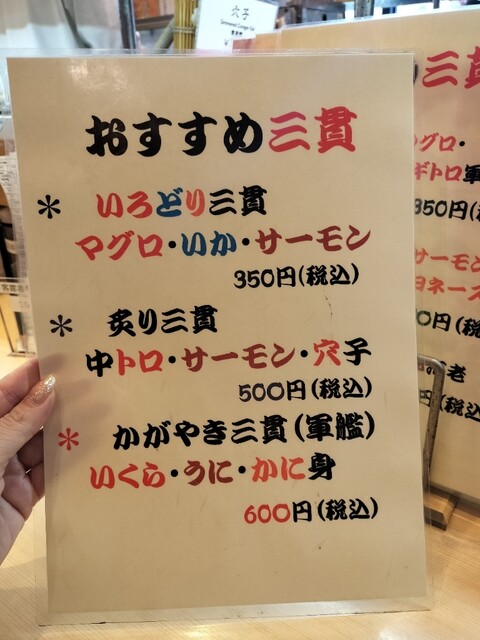 穴子
おすすめ三貫
* いろどり三貫
マグロ・いか・サーモン
350円(税込)
* 炙り三貫
中トロ・サーモン・穴子
500円(税込)
* かがやき三貫(軍艦)
いくら・うに・かに身
600円(税込)
三貫
マグロ・
ギトロ軍
350円(
サーモン
ヨネーズ
0円(税
老
(税込